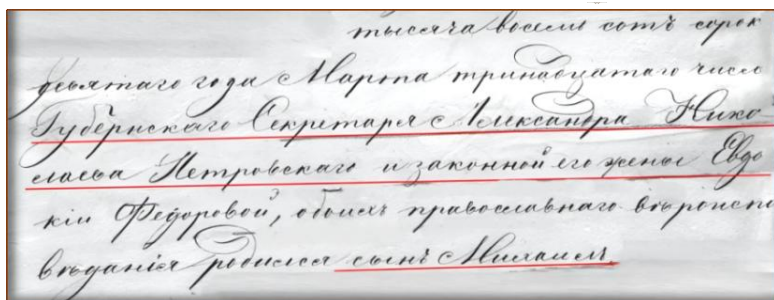 тысяча восемь сотъ сорок
девятаго года Марта тринадцатаго числа
Губернскаго Секретаря Александра Нико-
лаева Петровскаго и законной его жены Евдо
кіи Федоровой, обоихъ православнаго вѣроиспо
вѣданія родился сынъ Михаилъ.